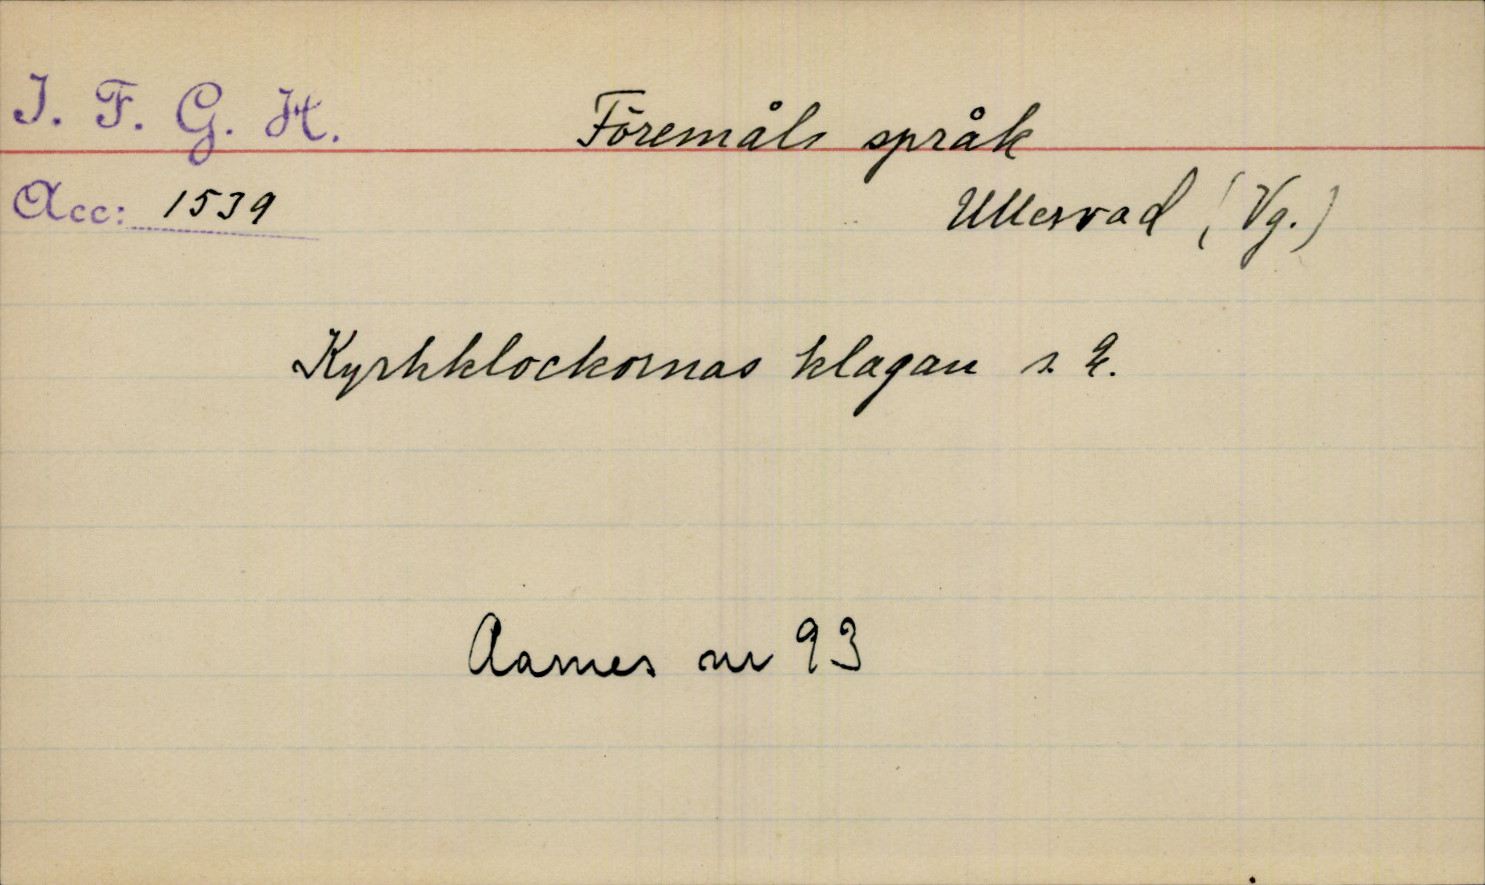 I. F. G. H.
Föremåls språk
Acc: 1539
Ullervad (Vg.)
Kyrkklockornas klagan s. 2.
Aarnes nr 93